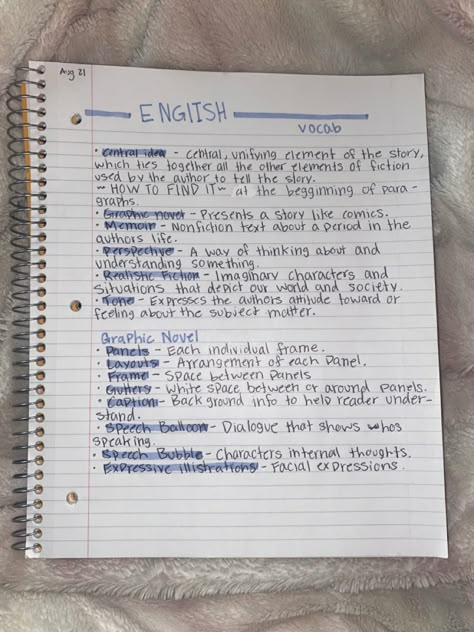 Aug 21
ENGLISH
vocab
• Central idea - Central, unifying element of the story,
which ties together all the other elements of fiction
used by the author to tell the story.
~ HOW TO FIND IT ~ at the beggining of para-
graphs.
• Graphic novel - Presents a story like comics.
• Memoir - Nonfiction text about a period in the
authors life.
• Perspective - A way of thinking about and
understanding something.
• Realistic Fiction - Imaginary characters and
situations that depict our world and society.
• Tone - Expresses the authors attitude toward or
feeling about the subject matter.
Graphic Novel
• Panels - Each individual frame.
• Layouts - Arrangement of each Panel.
• Frame - Space between Panels
• Gutters - White space between or around panels.
• Caption - Background info to help reader under-
stand.
• Speech Balloon - Dialogue that shows whos
speaking.
• Speech Bubble - Characters internal thoughts.
• Expressive Illistrations - Facial expressions.